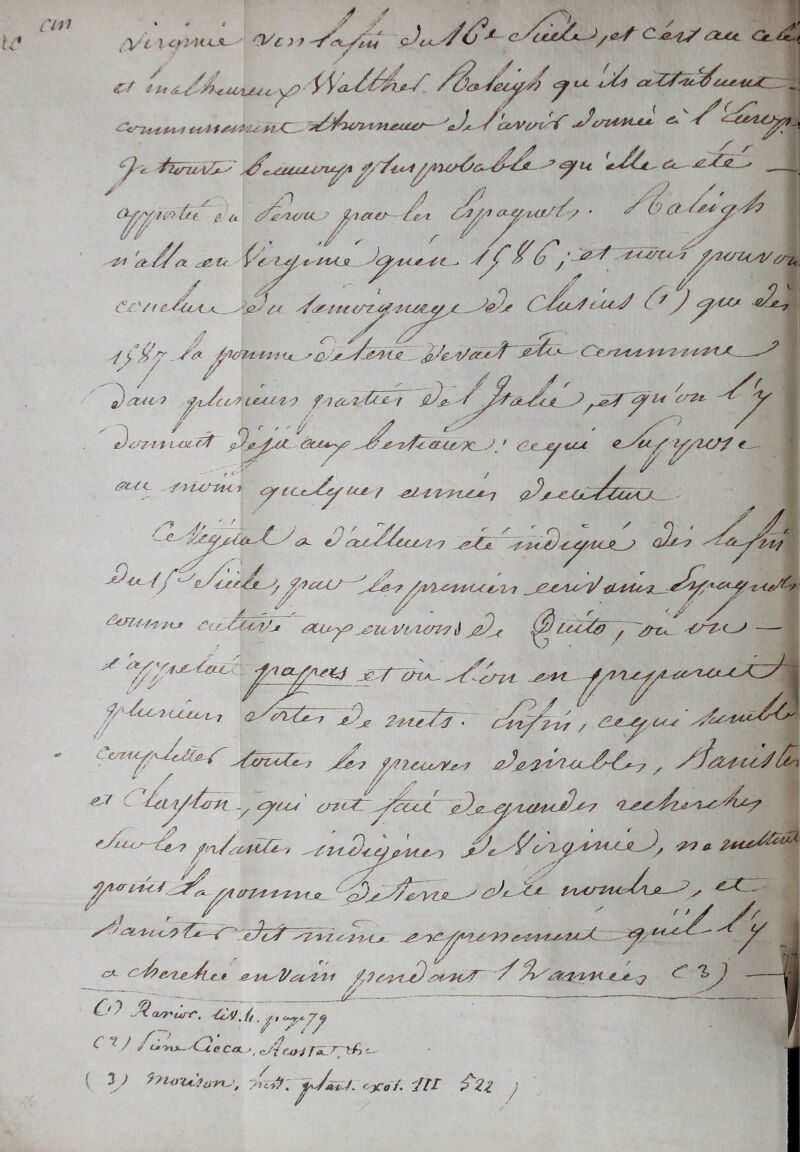 cm
Virginie vers la fin du 16e Siécle, et c'est au celè
et malheureux Walther Raleigh qu'ils attribuent
communement l'honneur de l'avoir donnée à l'Europ
Je trouve beaucoup plus probable qu'elle a été
apportée du Perou par les Espagnols. Raleigh
n'alla en Virginie qu'en 1586; et nous pouvon
conclure du temoignage de Clusius (1) que dès
1587 la pomme de terre devait etre commune
dans plusieurs partiés de l'Italié, et qu'on l'y
donnait déja aux bestiaux: ce qui suppose
au moins quelques années de culture
Ce Végétal a d'ailleurs été indiqué dès la fin
du 15e Siécle, par les premiers ecrivains Espagnols
comme cultivé aux environs de Quito, où on
l'appelait papas et où l'on en preparait
plusieurs Sortes de mets. Enfin, ce qui semble
completter toutes les preuves desirables, Banister
et Clayton, qui ont fait de grandes recherches
sur les plantes indigénes de Virginie, ne mettent
point la pomme de terre de ce nombre, et
Banister dit même expressement qu'il l'y
a cherchée en vain pendant 12 années (3)
(1) Rarior. liv. 4. page 79
(2) Cieca, Acosta,
(3) Morison, hist. plant. exot. III 522